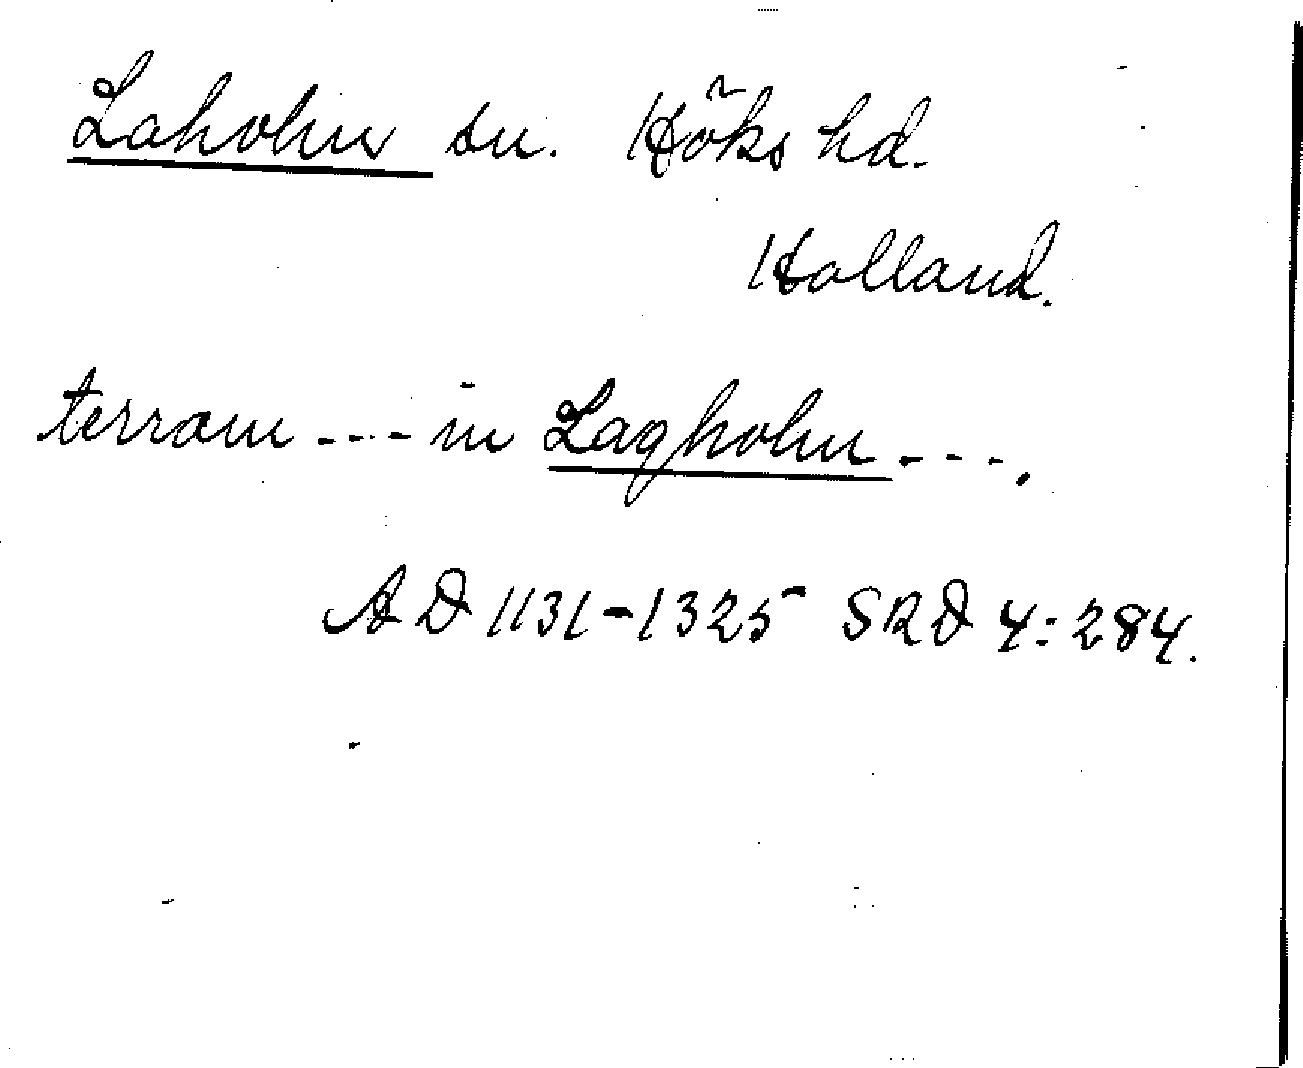 Laholms sn. Höks hd.
Halland.
terram ---- in Lagholm ----.
AD 1131-1325 SRD 4:284.